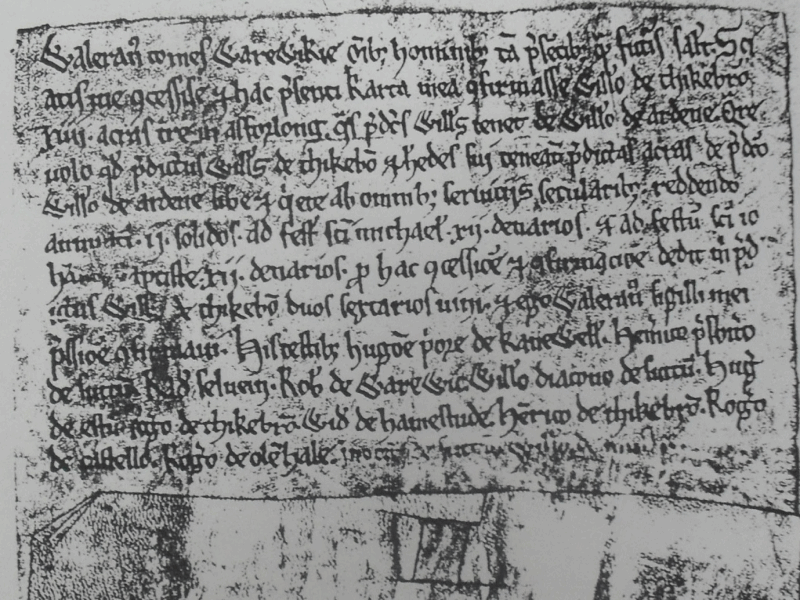 Waleran̄ comes Warewikie om̄ib; hominib; tā p̄sētib; q̄ futis̄ salt̄. Sci
atis me ꝯcessisse ⁊ hac p̄senti karta mea ꝯfirmasse Willo de thikebrō
xviii. acras tre in asforlong. q̄s p̄dc̄s Will's tenet de Willo de ardene. Q̄re
uolo qd̄ p̄dictus Will's de thikebrō ⁊ h̄edes sui teneāt p̄dictas acras de p̄dc̄o
Willo de ardene lib̄e ⁊ q̄ete ab omnib; seruitijs secularib; reddendo
annuati. ii. solidos. ad fest̄ sc̄i michael'. xii. denarios. ⁊ ad festū sc̄i io
hannis baptiste. xii. denarios. p̄ hac ꝯcessiōe ⁊ ꝯfirmaciōe. dedit m̄ p̄d
ictus Will's de thikebrō duos sextarios uini. ⁊ ego Waleran̄ sigilli mei
p̄ssiōe ꝯfirmaui. His testib; hugōe p̄ore de kaneWett̄. Henrico p̄sbit̄o
de Rad̄ seluein. Rob̄ de WareWic Willo diacono de Huḡ
de Rogo de thikebrō. Wid̄ de hanestude. Hēnrico de thikebrō. Roḡo
de castello. Roḡo de olēhale.